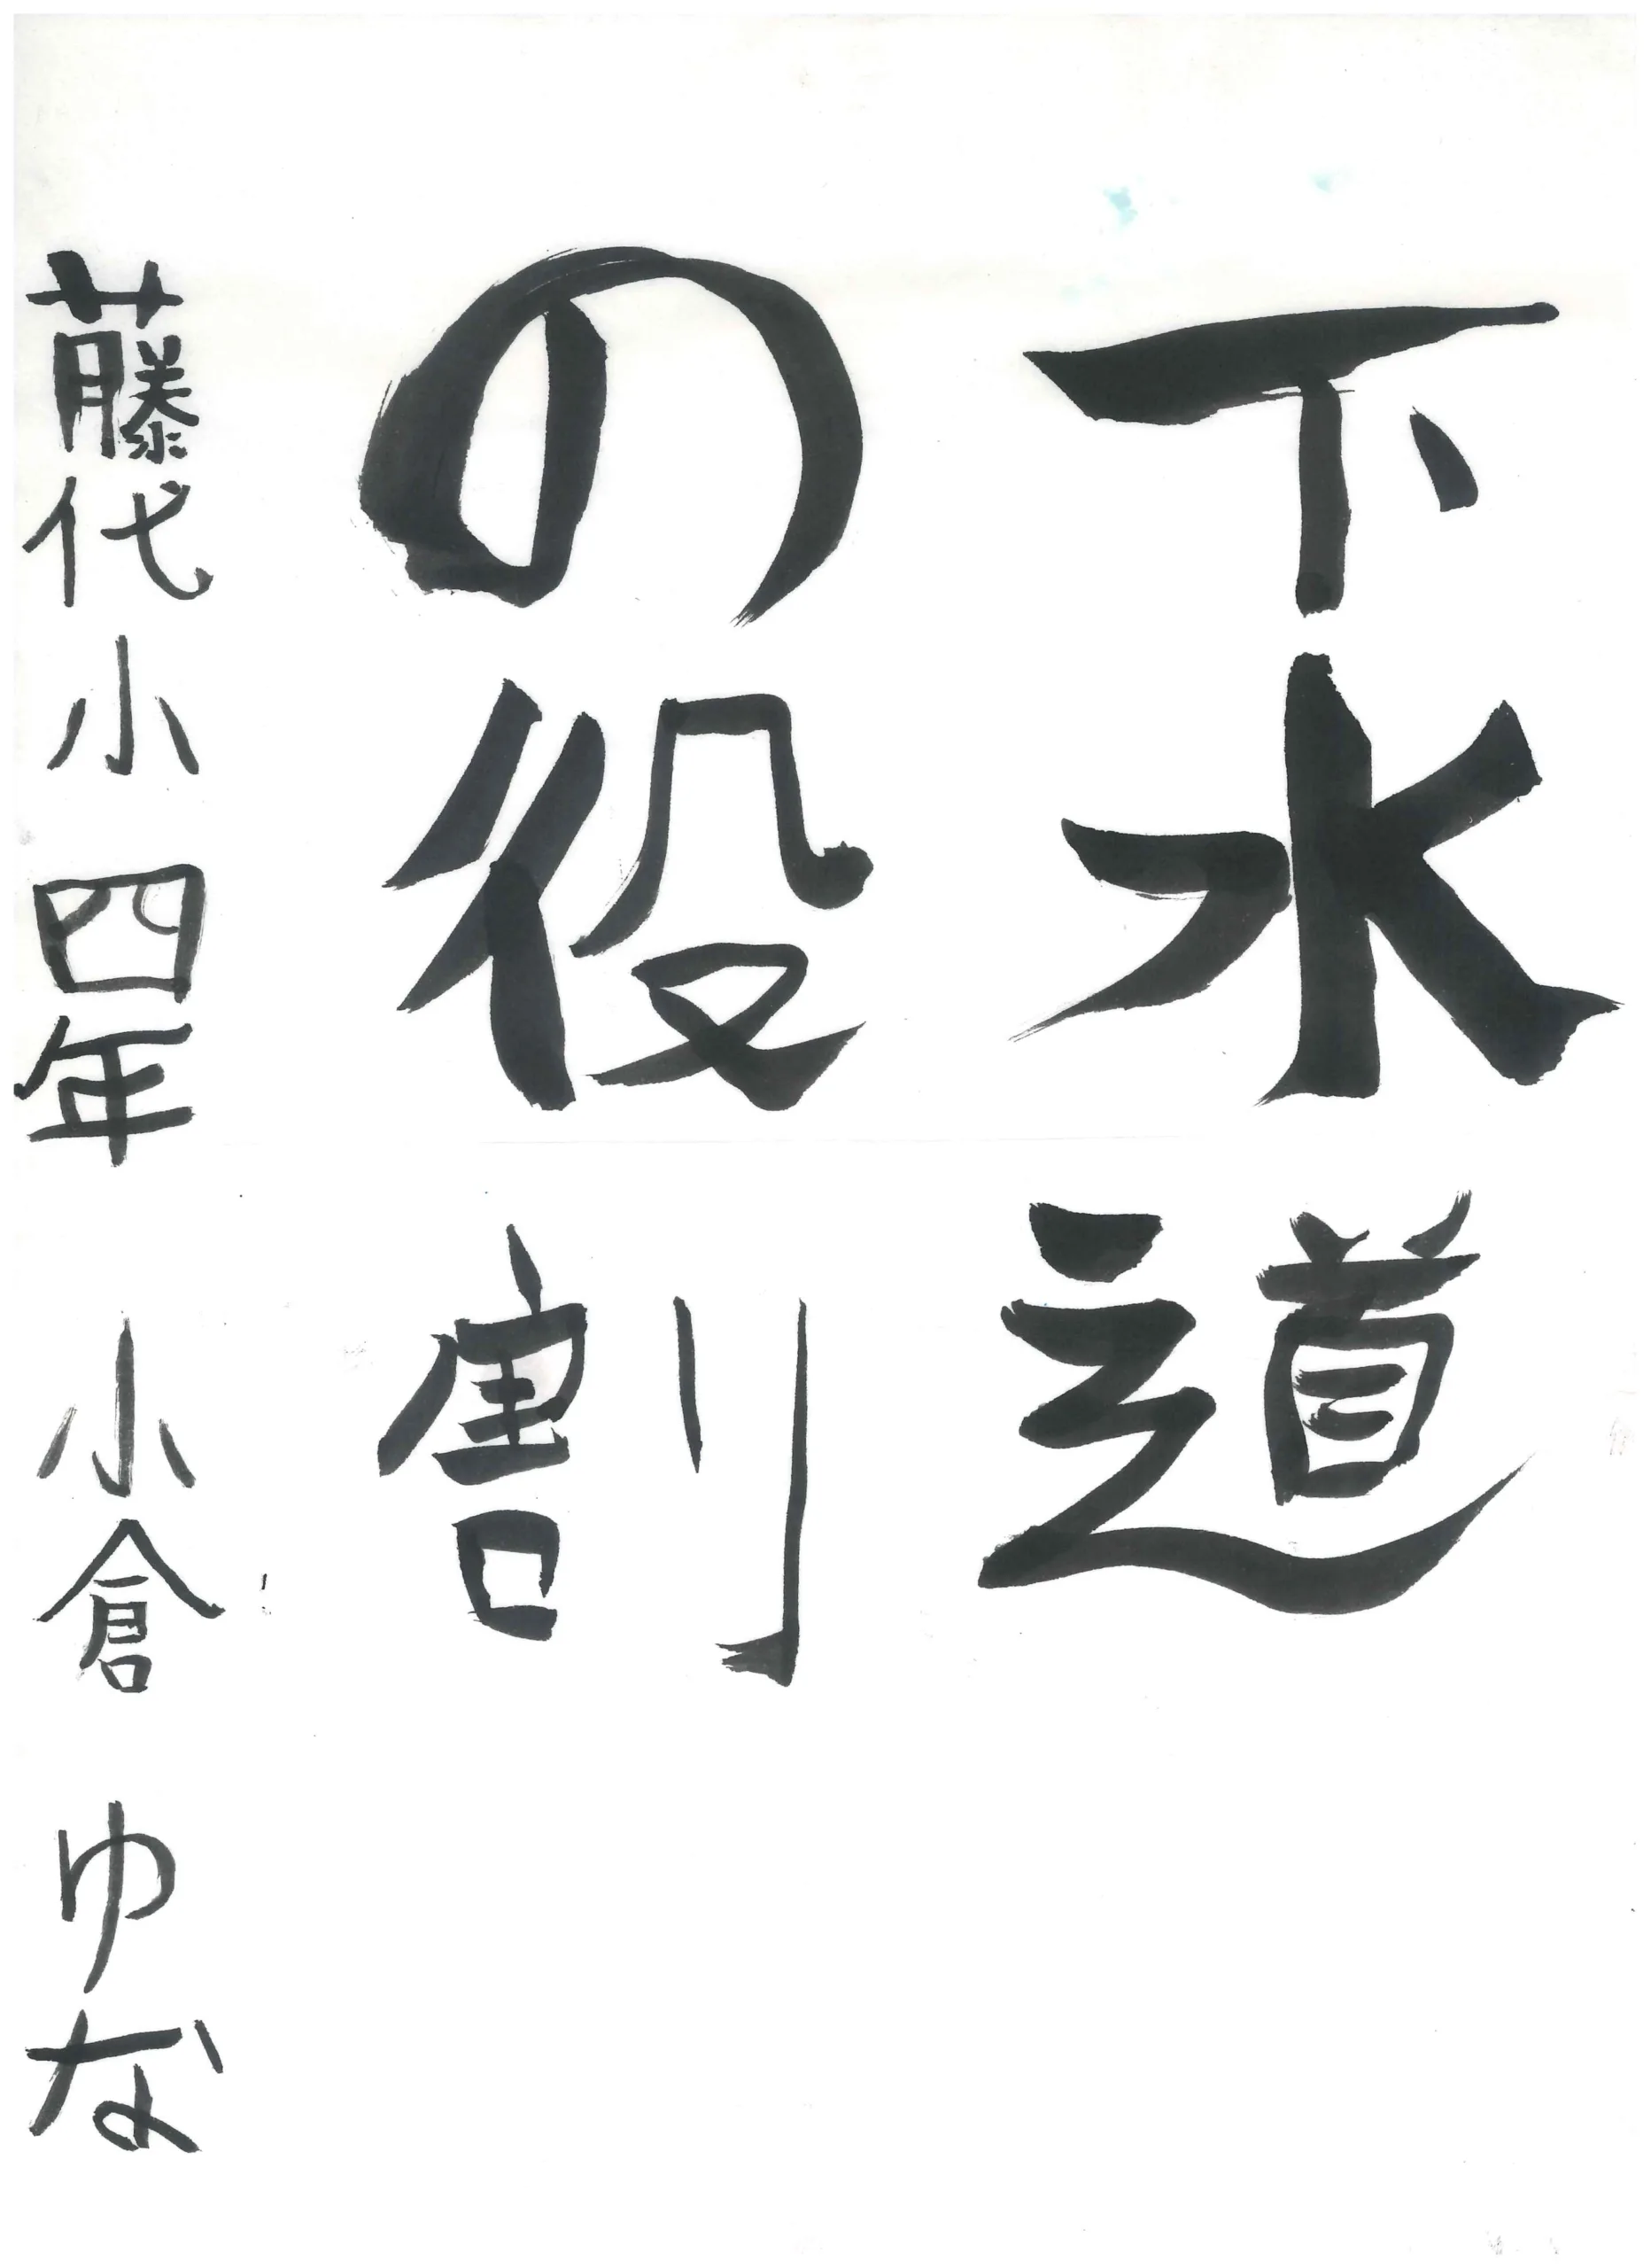 下水道
の役割
藤代小 四年 小倉 ゆな